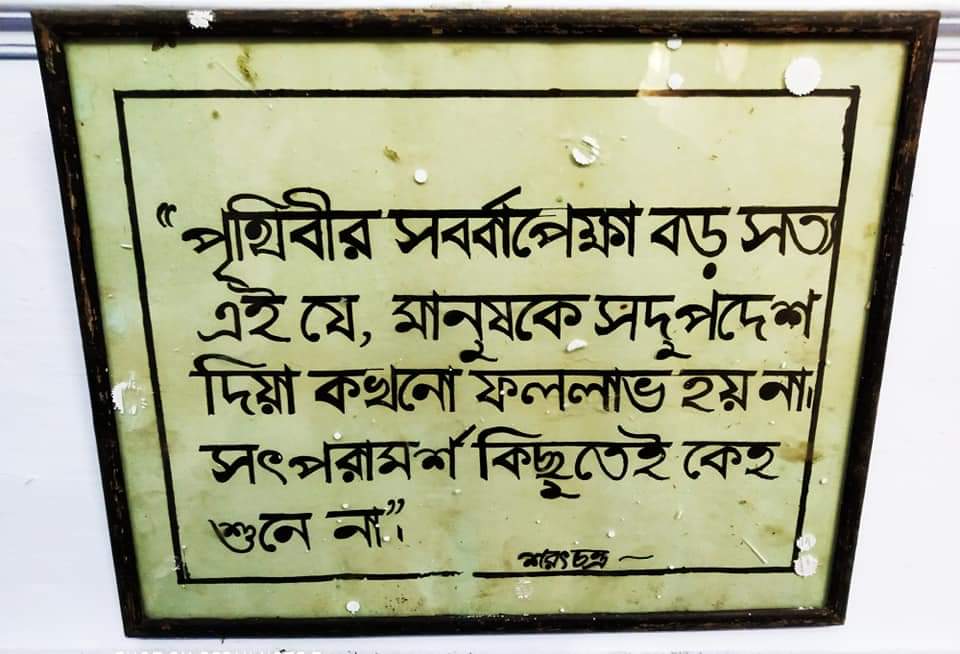 “পৃথিবীর সবর্বাপেক্ষা বড় সত্য
এই যে, মানুষকে সদুপদেশ
দিয়া কখনো ফললাভ হয় না।
সৎপরামর্শ কিছুতেই কেহ
শুনে না”।
শরৎচন্দ্র ~